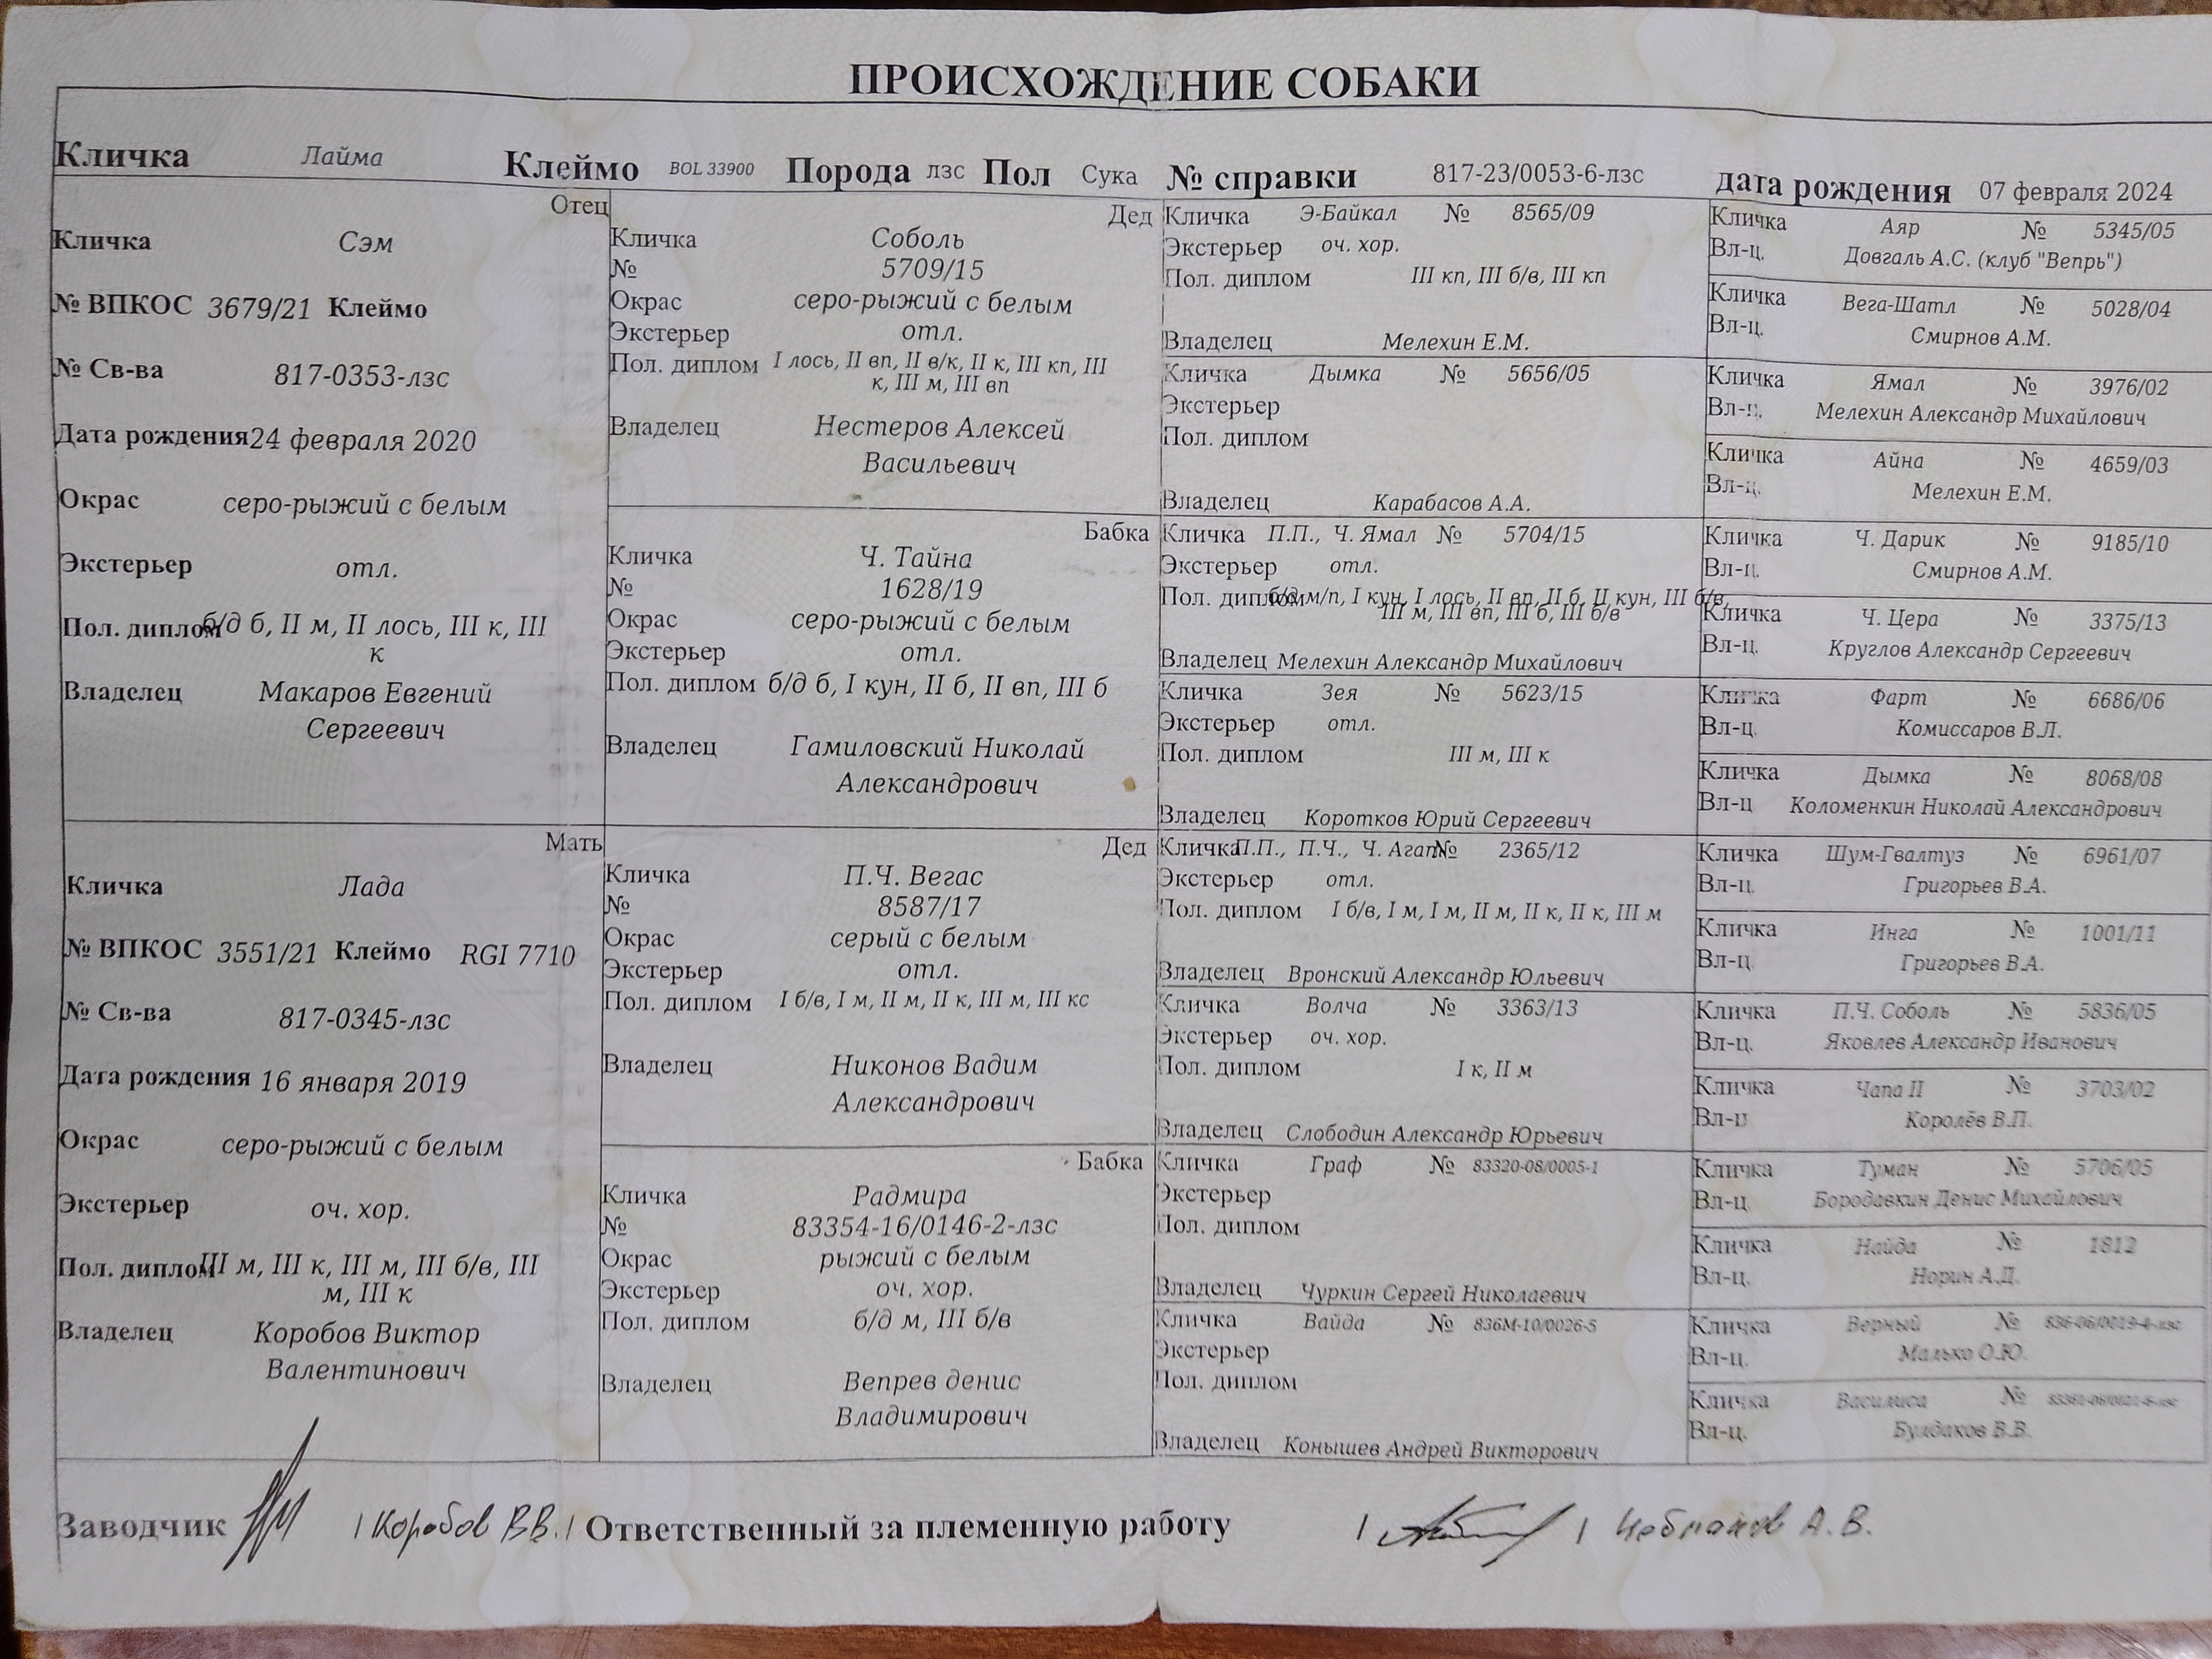 ПРОИСХОЖДЕНИЕ СОБАКИ
Кличка Лайма Клеймо BOL 33900 Порода лзс Пол Сука № справки 817-23/0053-6-лзс дата рождения 07 февраля 2024
Отец
Кличка Сэм
№ ВПКОС 3679/21 Клеймо
№ Св-ва 817-0353-лзс
Дата рождения 24 февраля 2020
Окрас серо-рыжий с белым
Экстерьер отл.
Пол. диплом б/д б, II м, II лось, III к, III
к
Владелец Макаров Евгений
Сергеевич
Мать
Кличка Лада
№ ВПКОС 3551/21 Клеймо RGI 7710
№ Св-ва 817-0345-лзс
Дата рождения 16 января 2019
Окрас серо-рыжий с белым
Экстерьер оч. хор.
Пол. диплом III м, III к, III м, III б/в, III
м, III к
Владелец Коробов Виктор
Валентинович
Дед
Кличка Соболь
№ 5709/15
Окрас серо-рыжий с белым
Экстерьер отл.
Пол. диплом I лось, II вп, II в/к, II к, III кп, III
к, III м, III вп
Владелец Нестеров Алексей
Васильевич
Бабка
Кличка Ч. Тайна
№ 1628/19
Окрас серо-рыжий с белым
Экстерьер отл.
Пол. диплом б/д б, I кун, II б, II вп, III б
Владелец Гамиловский Николай
Александрович
Дед
Кличка П.Ч. Вегас
№ 8587/17
Окрас серый с белым
Экстерьер отл.
Пол. диплом I б/в, I м, II м, II к, III м, III кс
Владелец Никонов Вадим
Александрович
Бабка
Кличка Радмира
№ 83354-16/0146-2-лзс
Окрас рыжий с белым
Экстерьер оч. хор.
Пол. диплом б/д м, III б/в
Владелец Вепрев денис
Владимирович
Кличка Э-Байкал № 8565/09
Экстерьер оч. хор.
Пол. диплом III кп, III б/в, III кп
Владелец Мелехин Е.М.
Кличка Дымка № 5656/05
Экстерьер
Пол. диплом
Владелец Карабасов А.А.
Кличка П.П., Ч. Ямал № 5704/15
Экстерьер отл.
Пол. диплом б/д м/п, I кун, I лось, II вп, II б, II кун, III б/в,
III м, III вп, III б, III б/в
Владелец Мелехин Александр Михайлович
Кличка Зея № 5623/15
Экстерьер отл.
Пол. диплом III м, III к
Владелец Коротков Юрий Сергеевич
Кличка П.П., П.Ч., Ч. Агат № 2365/12
Экстерьер отл.
Пол. диплом I б/в, I м, I м, II м, II к, II к, III м
Владелец Вронский Александр Юльевич
Кличка Волча № 3363/13
Экстерьер оч. хор.
Пол. диплом I к, II м
Владелец Слободин Александр Юрьевич
Кличка Граф № 83320-08/0005-1
Экстерьер
Пол. диплом
Владелец Чуркин Сергей Николаевич
Кличка Вайда № 836М-10/0026-5
Экстерьер
Пол. диплом
Владелец Конышев Андрей Викторович
Кличка Аяр № 5345/05
Вл-ц. Довгаль А.С. (клуб "Вепрь")
Кличка Вега-Шатл № 5028/04
Вл-ц. Смирнов А.М.
Кличка Ямал № 3976/02
Вл-ц. Мелехин Александр Михайлович
Кличка Айна № 4659/03
Вл-ц. Мелехин Е.М.
Кличка Ч. Дарик № 9185/10
Вл-ц. Смирнов А.М.
Кличка Ч. Цера № 3375/13
Вл-ц. Круглов Александр Сергеевич
Кличка Фарт № 6686/06
Вл-ц. Комиссаров В.Л.
Кличка Дымка № 8068/08
Вл-ц Коломенкин Николай Александрович
Кличка Шум-Гвалтуз № 6961/07
Вл-ц. Григорьев В.А.
Кличка Инга № 1001/11
Вл-ц. Григорьев В.А.
Кличка П.Ч. Соболь № 5836/05
Вл-ц. Яковлев Александр Иванович
Кличка Чапа II № 3703/02
Вл-ц Королёв В.П.
Кличка Туман № 5706/05
Вл-ц. Бородавкин Денис Михайлович
Кличка Найда № 1812
Вл-ц. Норин А.Д.
Кличка Верный №
Вл-ц. Малько О.Ю.
Кличка Василиса №
Вл-ц. Булдаков В.В.
Заводчик / Коробов В.В. / Ответственный за племенную работу / / А.В.